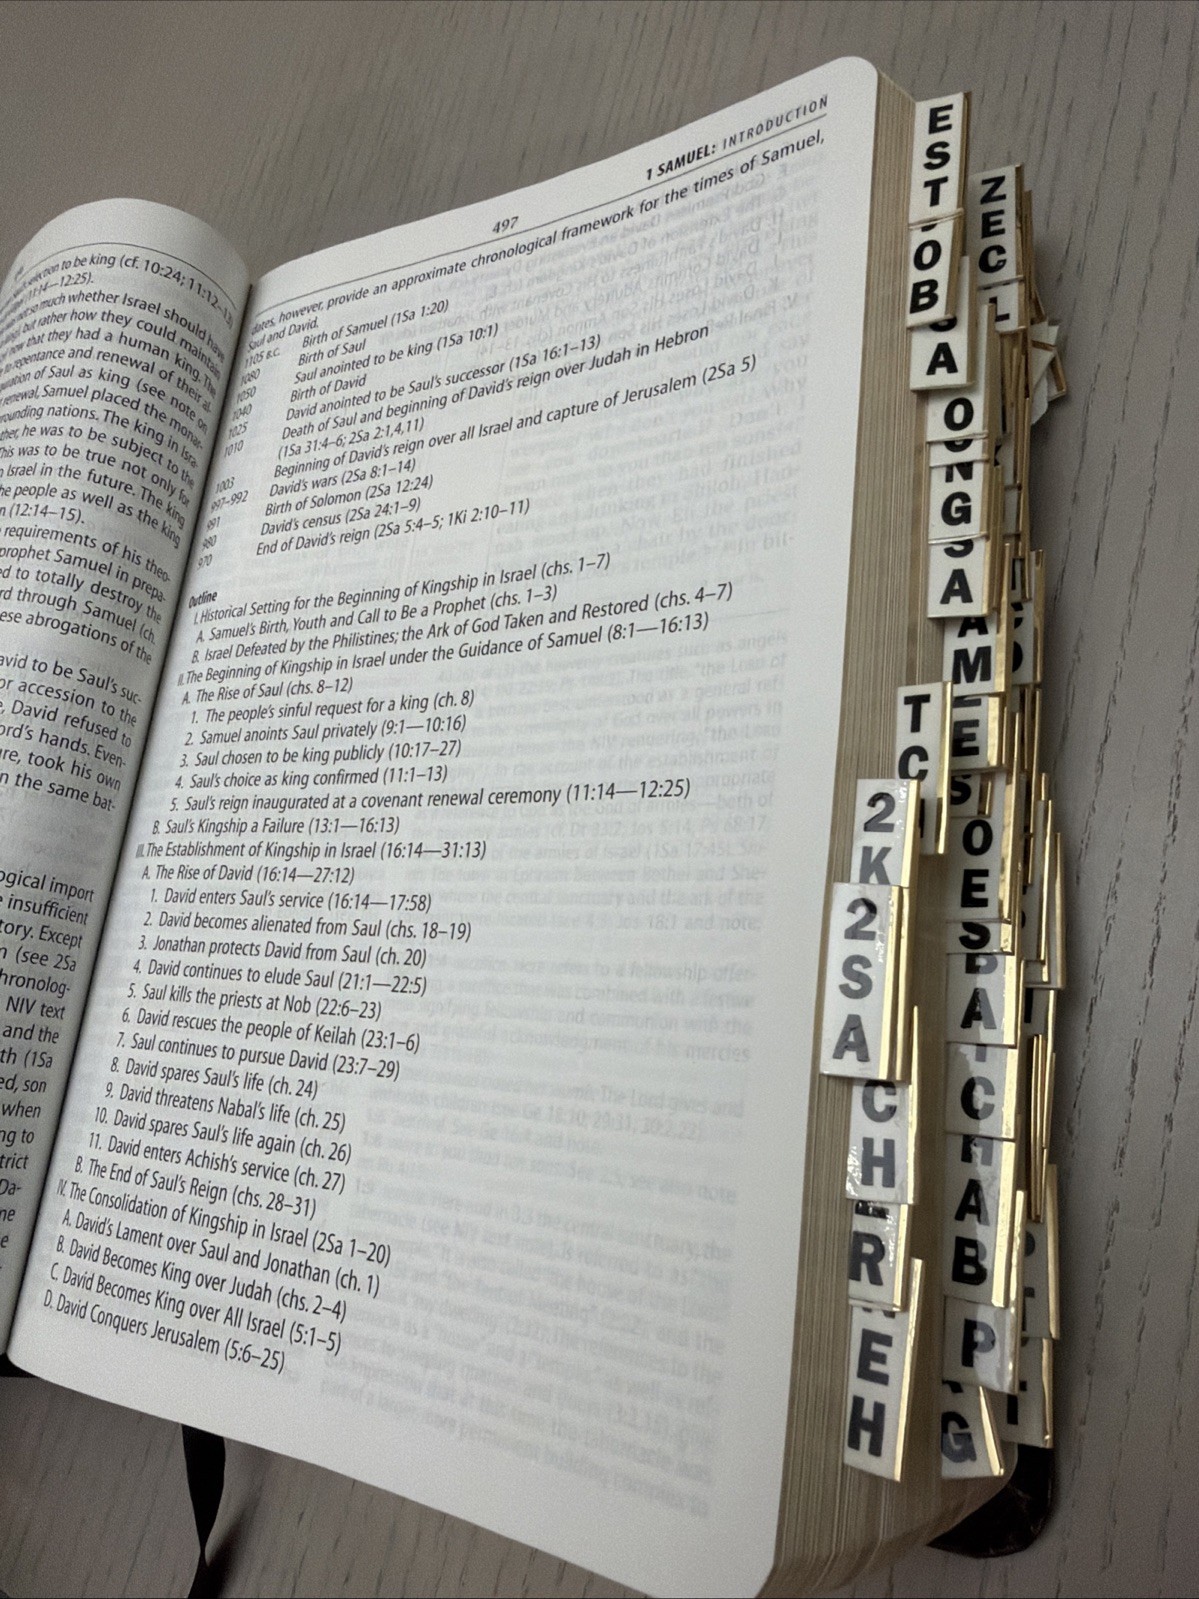 selection to be king (cf. 10:24; 11:12–13)
11:14—12:25).
not so much whether Israel should have
but rather how they could maintain
now that they had a human king. The
to repentance and renewal of their al-
of Saul as king (see note on
renewal, Samuel placed the monar-
nations. The king in Isra-
he was to be subject to the
This was to be true not only for
Israel in the future. The king
he people as well as the king
(12:14–15).
requirements of his theo-
prophet Samuel in prepa-
to totally destroy the
through Samuel (ch.
ese abrogations of the
avid to be Saul's suc-
or accession to the
David refused to
ord's hands. Even-
took his own
n the same bat-
ogical import
insufficient
tory. Except
(see 2Sa
hronolog-
NIV text
and the
th (1Sa
ed, son
when
ng to
trict
Da-
497
1 SAMUEL: INTRODUCTION
dates, however, provide an approximate chronological framework for the times of Samuel,
Saul and David.
1105 B.C. Birth of Samuel (1Sa 1:20)
1080 Birth of Saul
1050 Saul anointed to be king (1Sa 10:1)
1040 Birth of David
1025 David anointed to be Saul's successor (1Sa 16:1–13)
1010 Death of Saul and beginning of David's reign over Judah in Hebron
(1Sa 31:4–6; 2Sa 2:1,4,11)
1003 Beginning of David's reign over all Israel and capture of Jerusalem (2Sa 5)
997–992 David's wars (2Sa 8:1–14)
991 Birth of Solomon (2Sa 12:24)
980 David's census (2Sa 24:1–9)
970 End of David's reign (2Sa 5:4–5; 1Ki 2:10–11)
Outline
I. Historical Setting for the Beginning of Kingship in Israel (chs. 1–7)
A. Samuel's Birth, Youth and Call to Be a Prophet (chs. 1–3)
B. Israel Defeated by the Philistines; the Ark of God Taken and Restored (chs. 4–7)
II. The Beginning of Kingship in Israel under the Guidance of Samuel (8:1—16:13)
A. The Rise of Saul (chs. 8–12)
1. The people's sinful request for a king (ch. 8)
2. Samuel anoints Saul privately (9:1—10:16)
3. Saul chosen to be king publicly (10:17–27)
4. Saul's choice as king confirmed (11:1–13)
5. Saul's reign inaugurated at a covenant renewal ceremony (11:14—12:25)
B. Saul's Kingship a Failure (13:1—16:13)
III. The Establishment of Kingship in Israel (16:14—31:13)
A. The Rise of David (16:14—27:12)
1. David enters Saul's service (16:14—17:58)
2. David becomes alienated from Saul (chs. 18–19)
3. Jonathan protects David from Saul (ch. 20)
4. David continues to elude Saul (21:1—22:5)
5. Saul kills the priests at Nob (22:6–23)
6. David rescues the people of Keilah (23:1–6)
7. Saul continues to pursue David (23:7–29)
8. David spares Saul's life (ch. 24)
9. David threatens Nabal's life (ch. 25)
10. David spares Saul's life again (ch. 26)
11. David enters Achish's service (ch. 27)
B. The End of Saul's Reign (chs. 28–31)
IV. The Consolidation of Kingship in Israel (2Sa 1–20)
A. David's Lament over Saul and Jonathan (ch. 1)
B. David Becomes King over Judah (chs. 2–4)
C. David Becomes King over All Israel (5:1–5)
D. David Conquers Jerusalem (5:6–25)
EST
JOB
SA
O
NG
SA
AM
ES
OES
ZEC
TC
2K
2SA
CH
R
EH
A
C
HAB
P
G